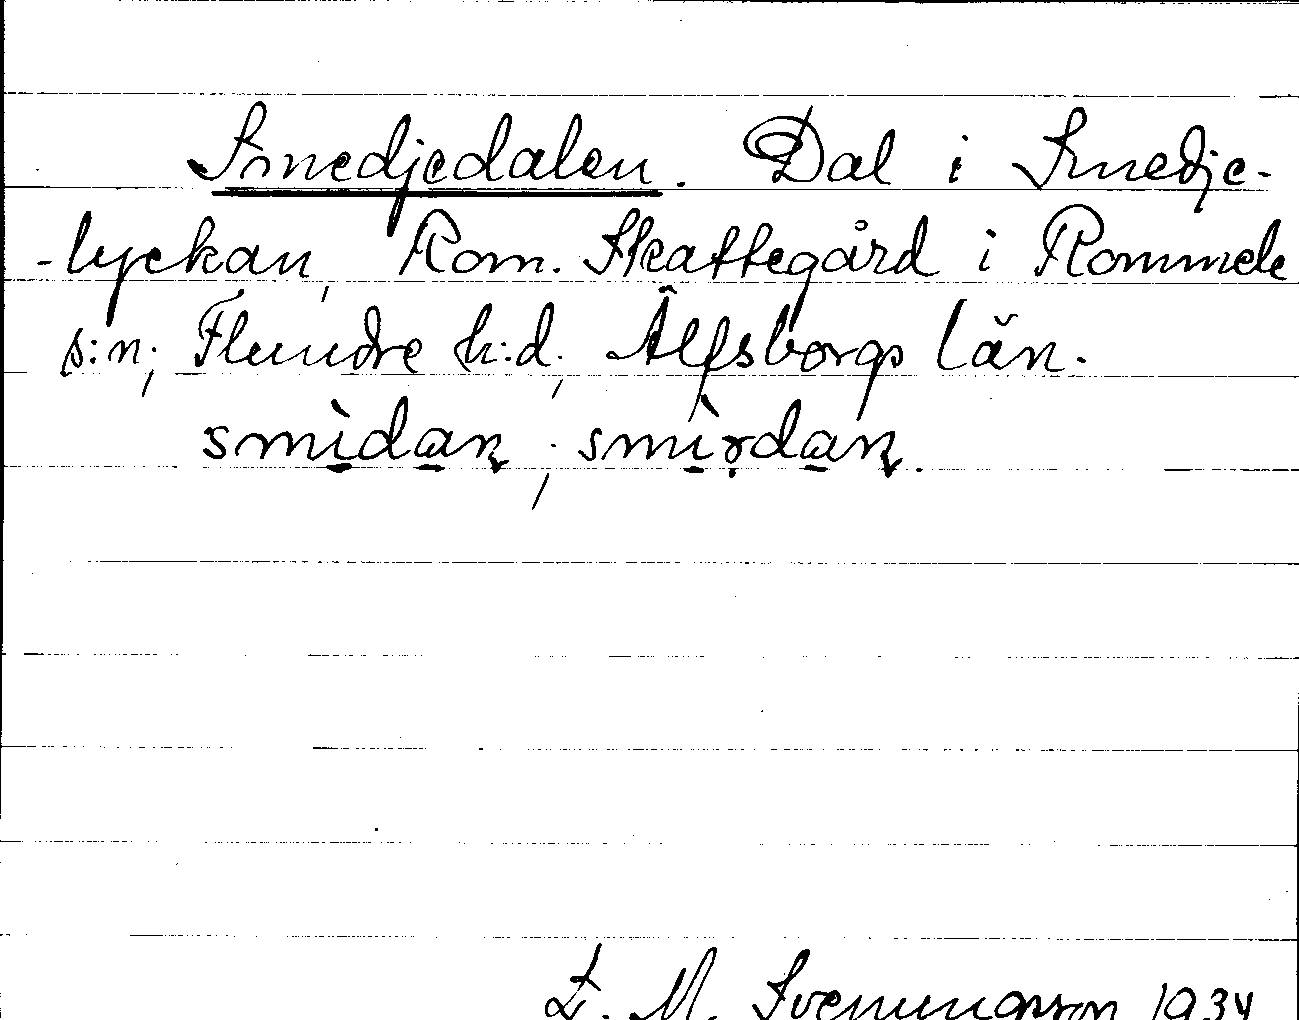 Smedjedalen. Dal i Smedje-
-lyckan, Rom. Skattegård i Rommele
s:n; Flundre h:d; Älfsborgs län.
smìdan; smìrdan.
F. M. Svenungsson 1934